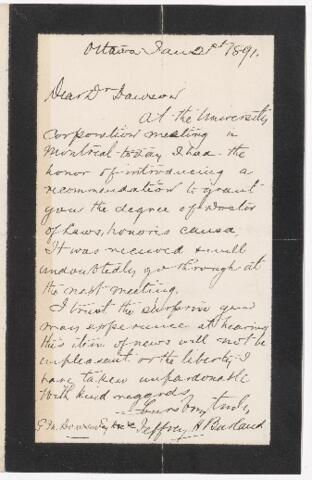 Ottawa Jan 21st 1891.
Dear Dr Dawson
At the University
Corporation meeting in
Montreal to-day I had the
honor of introducing a
recommendation to grant
you the degree of Doctor
of Laws, honoris causa.
It was received & will
undoubtedly go through at
the next meeting.
I trust the surprise you
may experience at hearing
this item of news will not be
unpleasant or the liberty I
have taken unpardonable
With kind regards,
Yours very truly
G M Dawson Esq Jeffrey H Burland